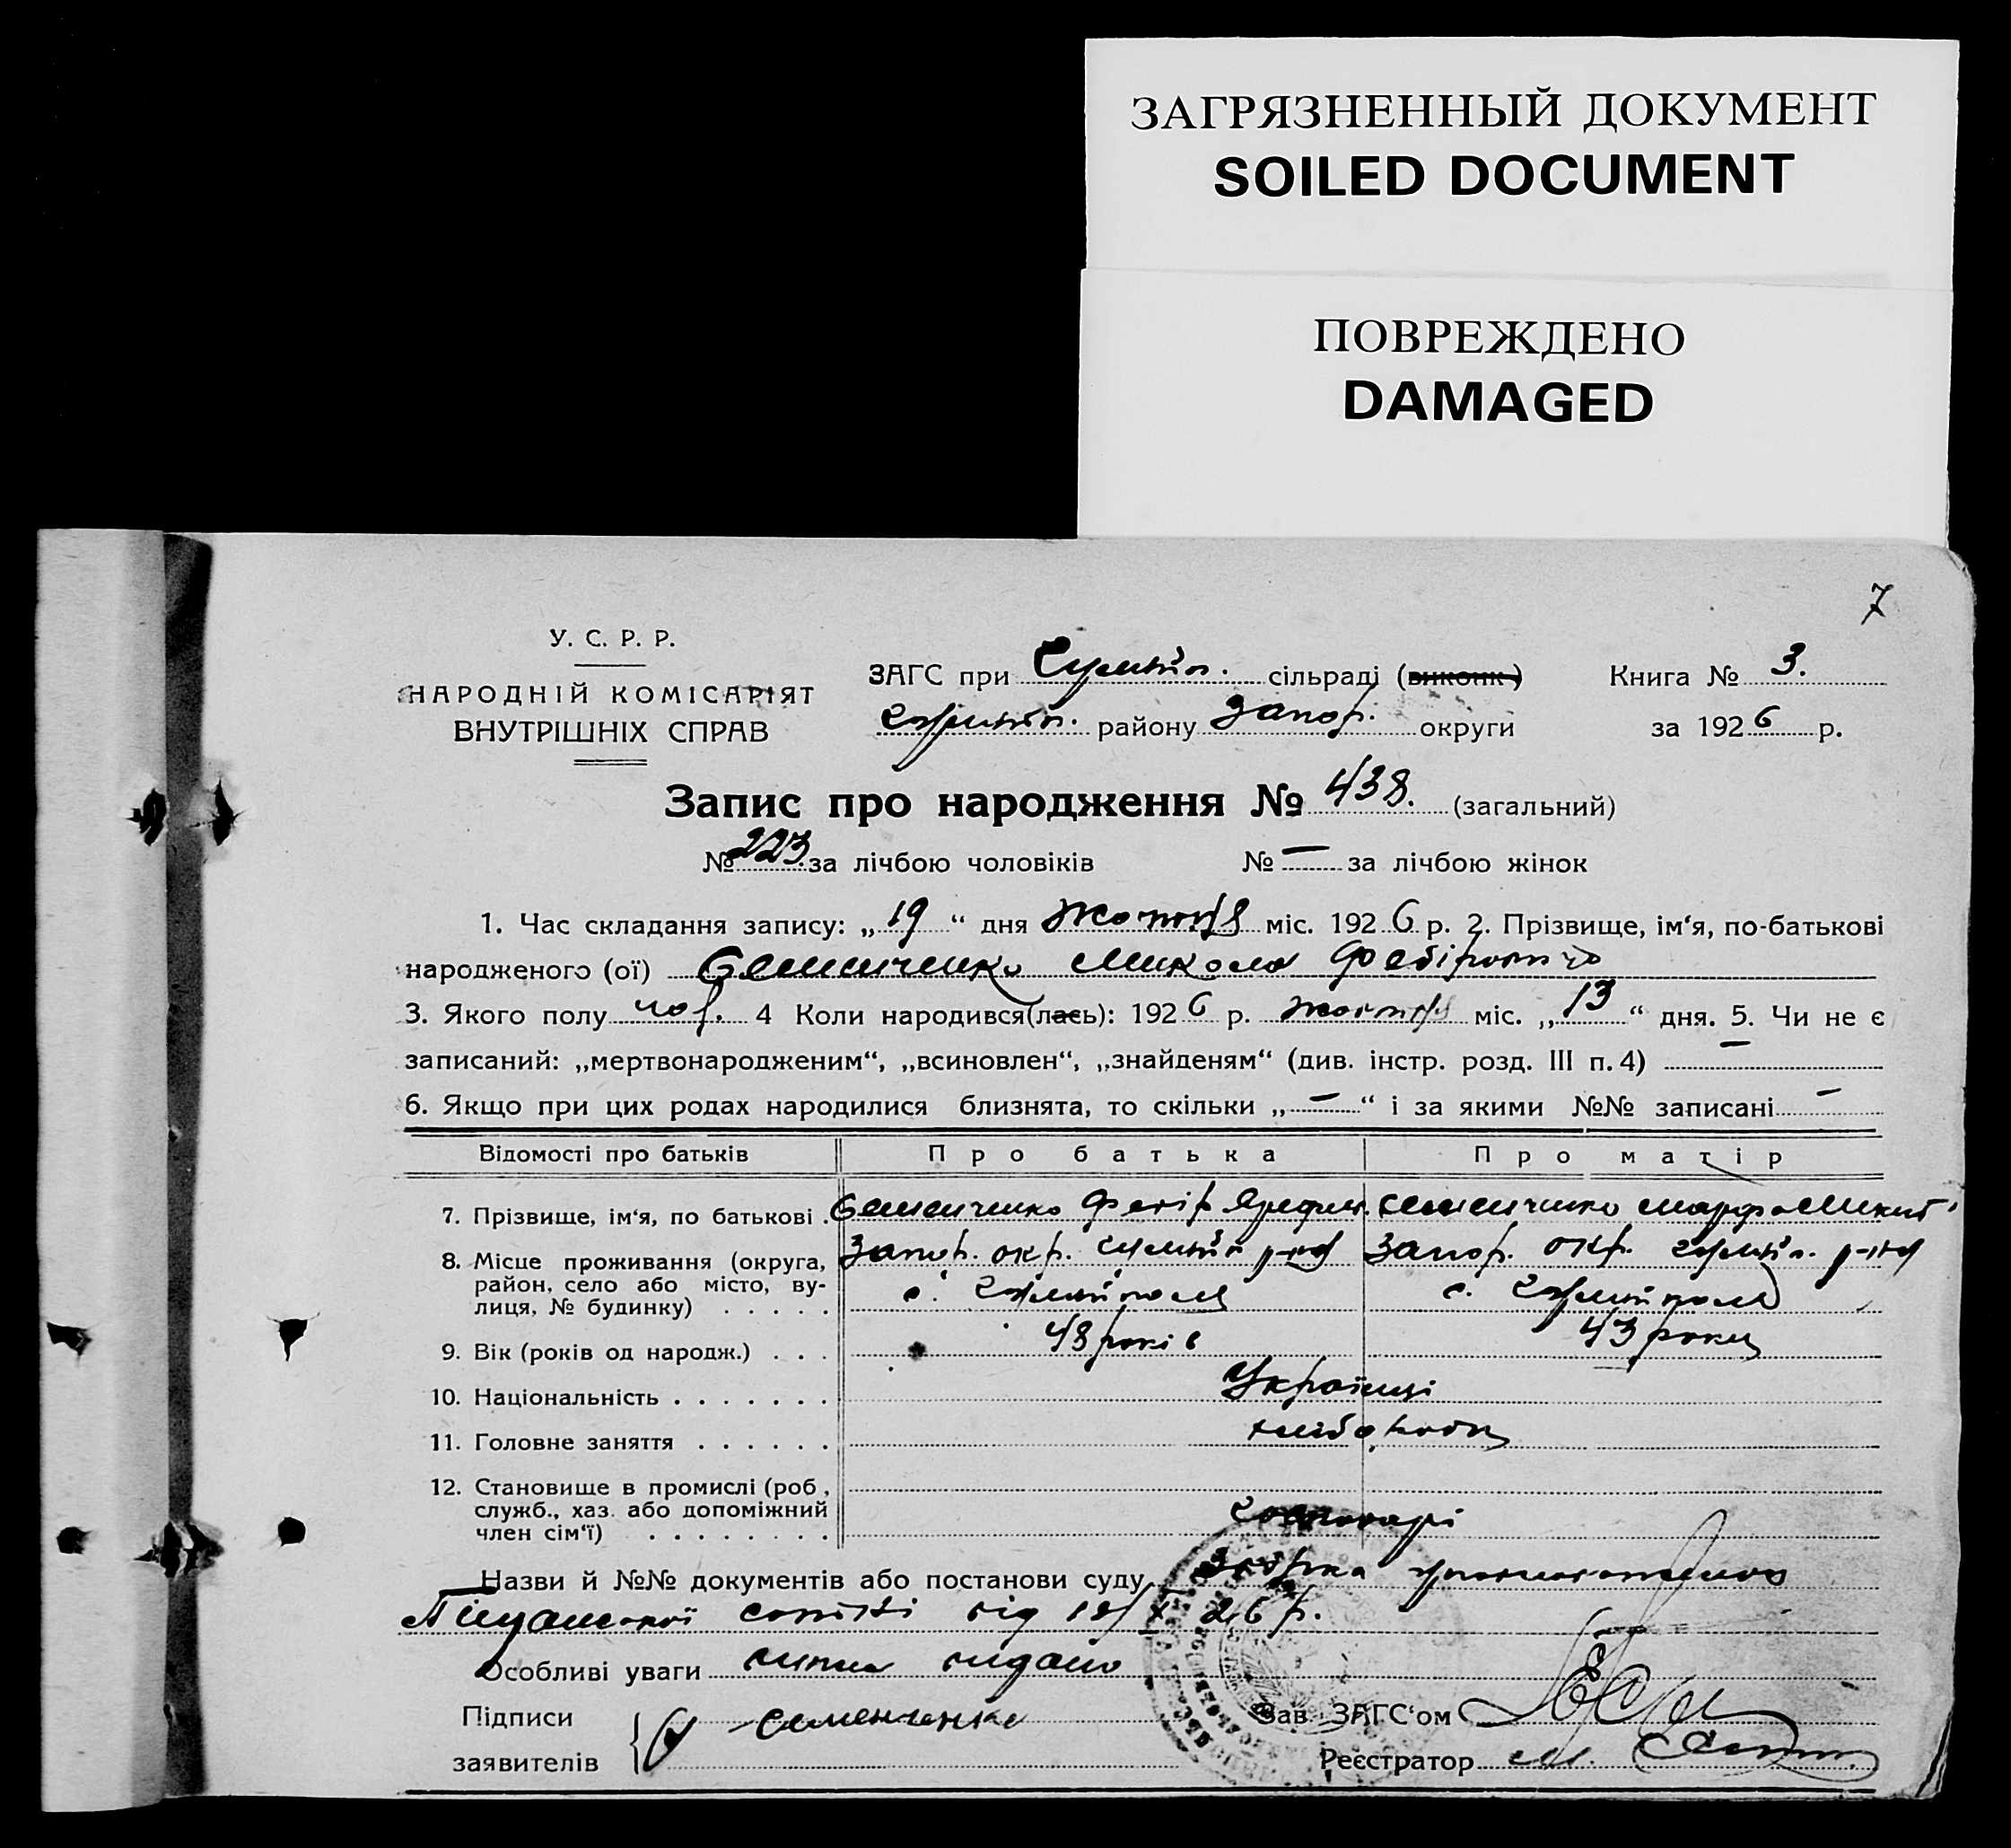 ЗАГРЯЗНЕННЫЙ ДОКУМЕНТ
SOILED DOCUMENT
ПОВРЕЖДЕНО
DAMAGED
7
У. С. Р. Р.
НАРОДНІЙ КОМІСАРІЯТ
ВНУТРІШНІХ СПРАВ
ЗАГС при Гуляйп. сільраді (виконк.) Книга № 3.
Гуляйп. району Запор. округи за 1926 р.
Запис про народження № 438. (загальний)
№ 223 за лічбою чоловіків № — за лічбою жінок
1. Час складання запису: „19“ дня Жовтня міс. 1926 р. 2. Прізвище, ім‘я, по-батькові
народженого (ої) Семенченко Микола
3. Якого полу чол. 4 Коли народився(лась): 1926 р. жовтня міс. „13“ дня. 5. Чи не є
записаний: „мертвонародженим“, „всиновлен“, „знайденям“ (див. інстр. розд. III п. 4) —
6. Якщо при цих родах народилися близнята, то скільки „—“ і за якими №№ записані —
Відомості про батьків Про батька Про матір
7. Прізвище, ім‘я, по батькові . Семенченко Семенченко Марфа Микит.
8. Місце проживання (округа, район, село або місто, вулиця, № будинку) . . . . .
Запор. окр. Гуляйп. р-ну Запор. окр. Гуляйп. р-ну
с. Гуляйполе с. Гуляйполе
9. Вік (років од народж.) . . . 48 років 43 роки
10. Національність . . . . . . . Українці
11. Головне заняття . . . . . . хлібороби
12. Становище в промислі (роб., служб., хаз. або допоміжний член сім‘ї) . . . . . . . .
Господарі
Назви й №№ документів або постанови суду
від 26 р.
Особливі уваги видано
Підписи
заявителів
Семенченко
Зав. ЗАГС‘ом
Реєстратор М.